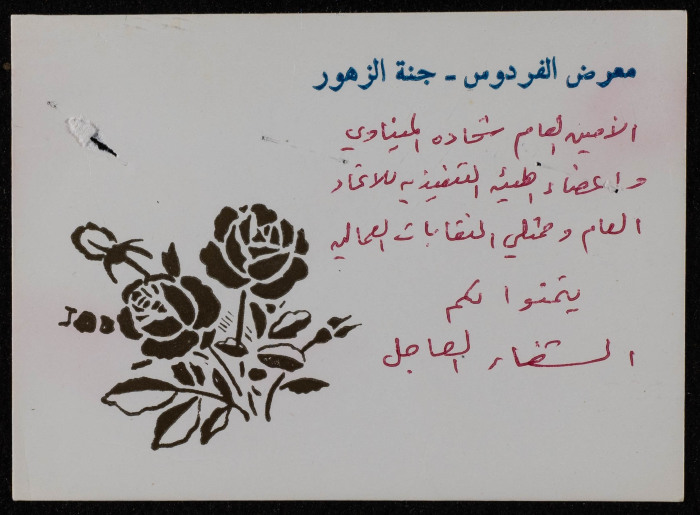 معرض الفردوس - جنة الزهور
الأمين العام شحاده الميناوي
واعضاء الهيئه التنفيذيه للاتحاد
العام وممثلي النقابات العماليه
يتمنوا لكم
الشفاء العاجل